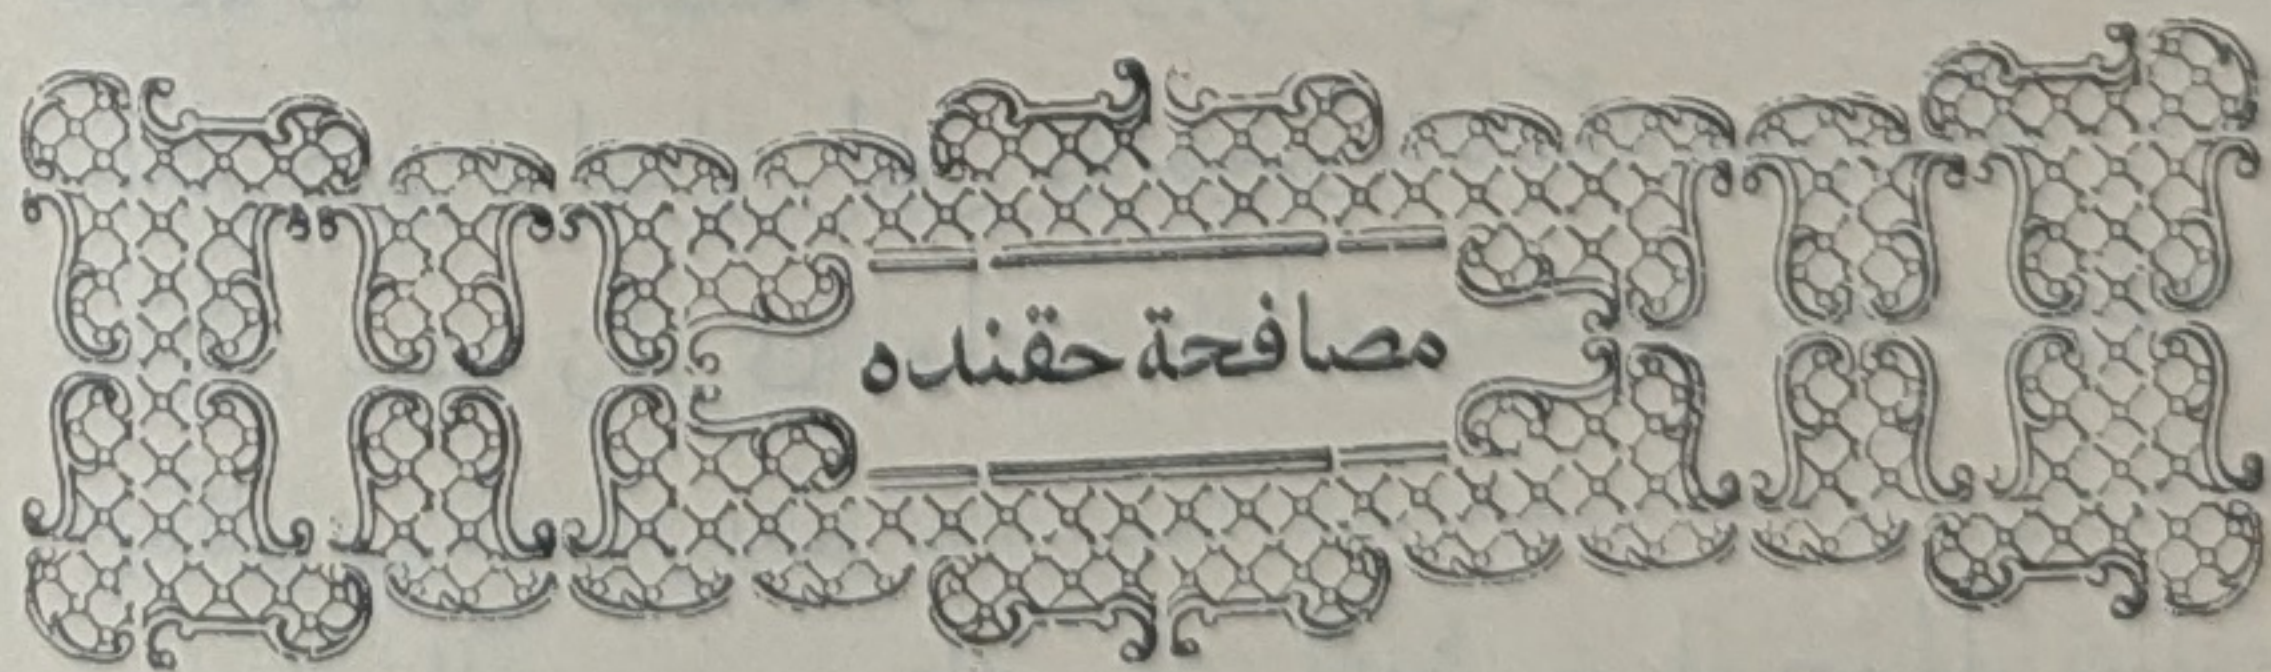 مصافحة حقنده